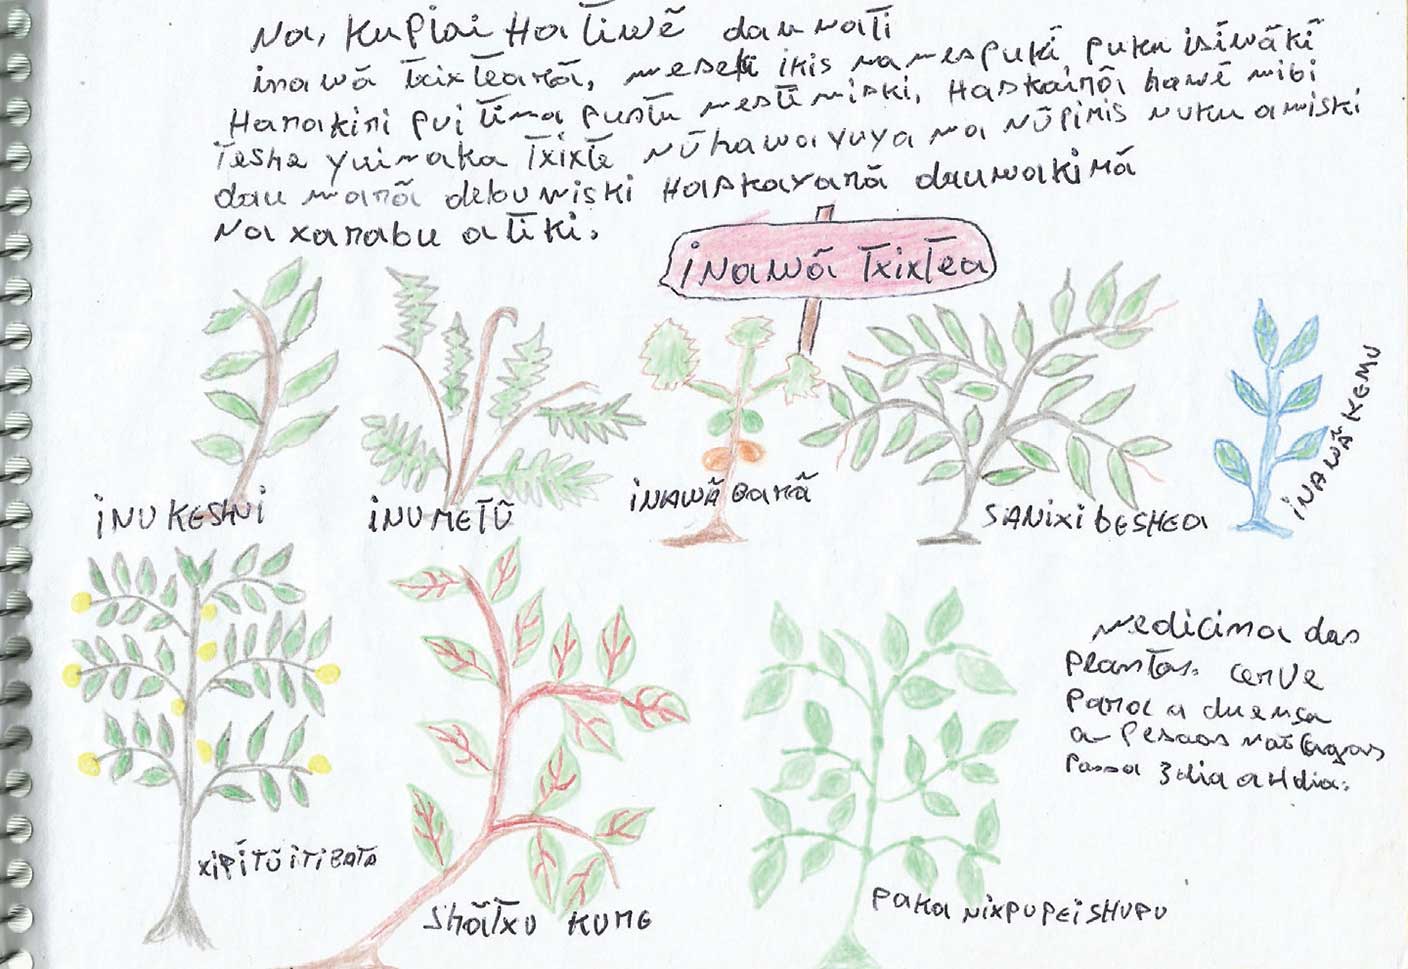 Na, Kupiai Hatiwẽ daunati
inawã Txixteanã, meseki ikis namespukĩ, puku isiwãkĩ
Hanakini pui tima pustu mestẽ miski, Haskainõ hawẽ mibi
Teshe yuinaka Txixte nũhawayuya ma nũpimis nuku amiski
dau manã debumiski Haskayanã daunakimã
Na xanabu atiki.
inawã Txixtea
iNU KESHNi
iNU METŨ
iNAWÃ BANÃ
SANiXi bESHEA
iNAWÃ KEMU
Medicina das
Plantas. cerve
Para a duensa
a Pesaos
Passa 3 dia a 4 dia.
XiPiTŨ iTi BATA
SHÃTXU KUME
PAKA NiXPUPEi SHUPU